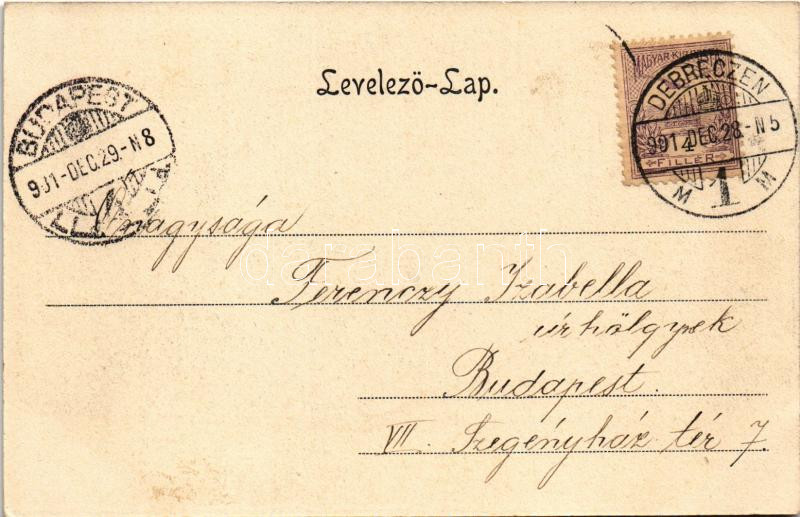 Levelező-Lap.
MAGYAR KIR. POSTA
4
FILLÉR
DEBRECZEN
901 DEC. 28.-N5
1
M M
BUDAPEST
901-DEC.29.-N8
Őnagysága
Ferenczy Izabella
úrhölgynek
Budapest.
VII. Szegényház tér 7.
darabanth